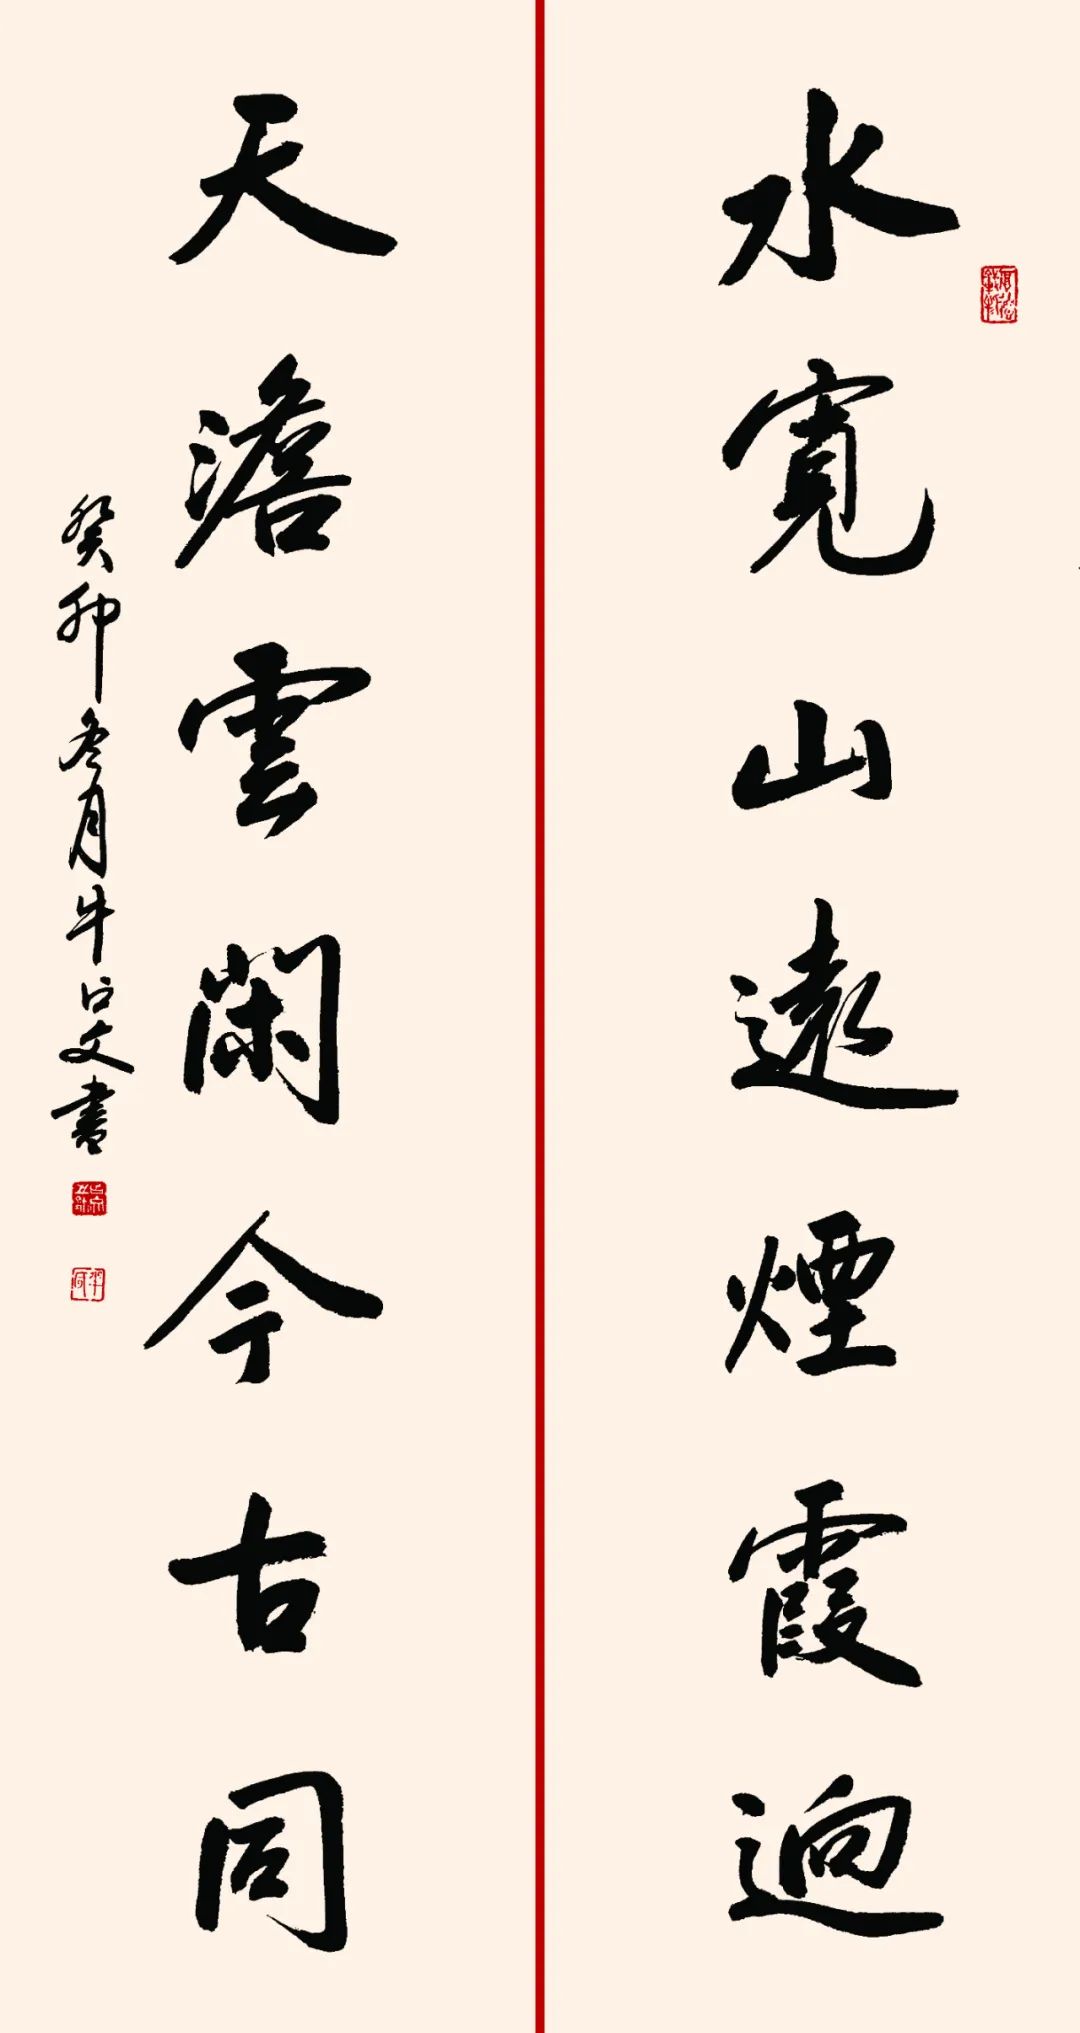 水寬山遠煙霞迥
天澹雲閑今古同
癸卯冬月牛占文書